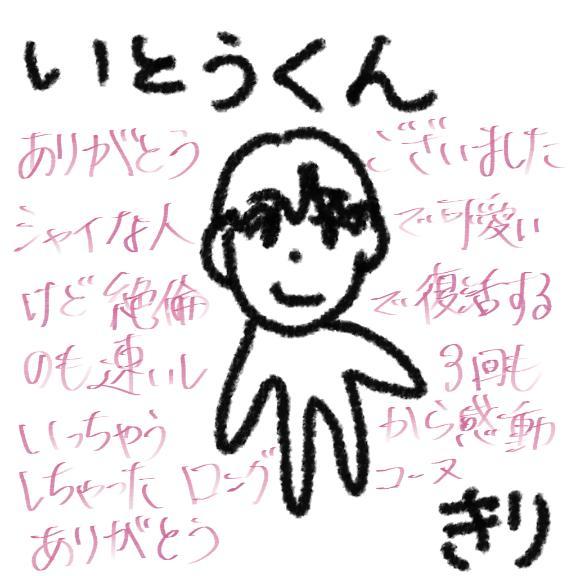 いとうくん
ありがとう ございました
シャイな人 で可愛い
けど 絶倫 で復活する
のも速いし 3回も
いっちゃう から感動
しちゃった ロング コース
ありがとう
きり